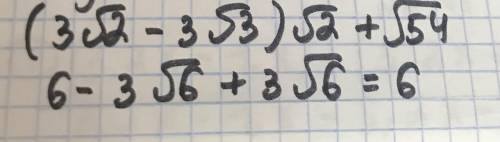 (3√2 - 3√3)√2 + √54
6 - 3√6 + 3√6 = 6